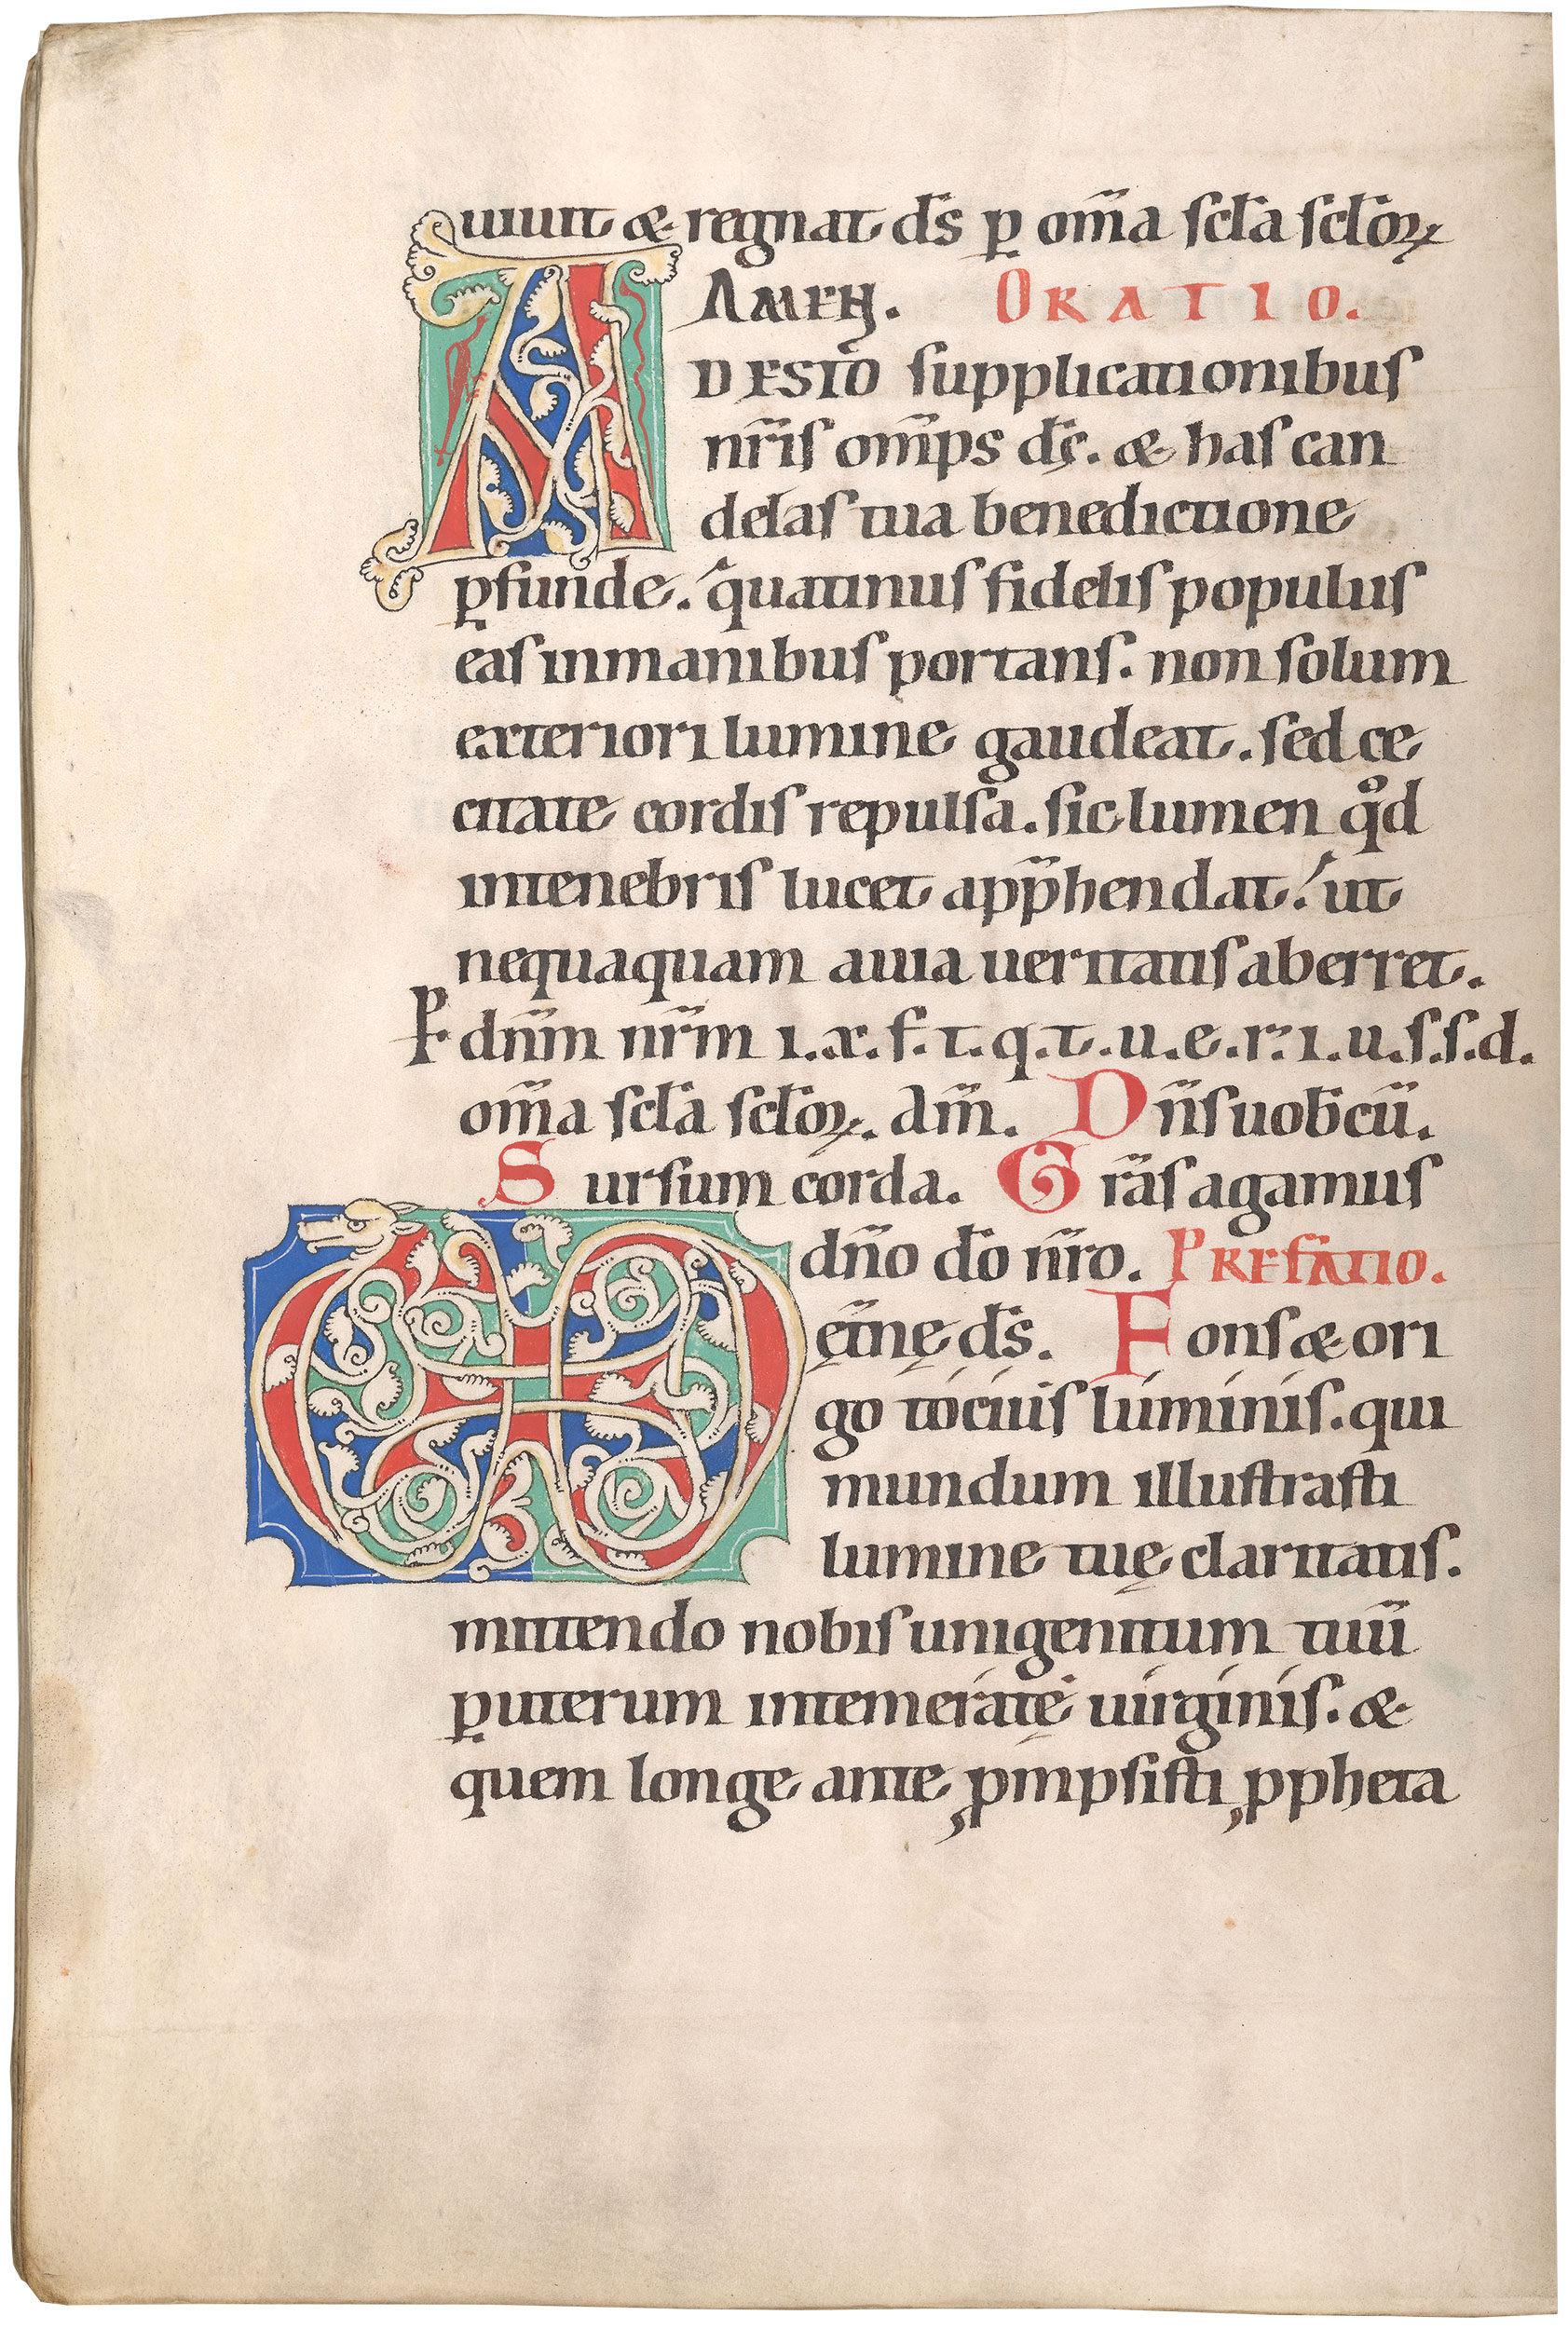 uiuit & regnat d̄s ꝑ om̄a scl̄a scl̄oꝝ
AMEN. ORATIO.
ADESTO supplicationibus
nr̄is om̄ps d̄s. & has can
delas tua benedictione
ꝑfunde. quatinus fidelis populus
eas inmanibus portans. non solum
exteriori lumine gaudeat. sed ce
citate cordis repulsa. sic lumen qͦd
intenebris lucet app̄hendat. ut
nequaquam auia ueritatis aberret.
P dn̄m nr̄m i.x.f.t.q.t.u.e.r.i.u.s.s.d.
om̄a scl̄a scl̄oꝝ. am̄. Dn̄s uob̄cū.
Sursum corda. Gr̄as agamus
dn̄o dō nr̄o. PREFATIO.
ęt̄nę d̄s. Fons & ori
go tocíuís lúmínís. qui
mundum illustrasti
lumine tuę claritatis.
mittendo nobis unigenitum tuū
ꝑ uterum intemeráte uírgínís. &
quem longe ante ꝓmpsisti ꝓpheta